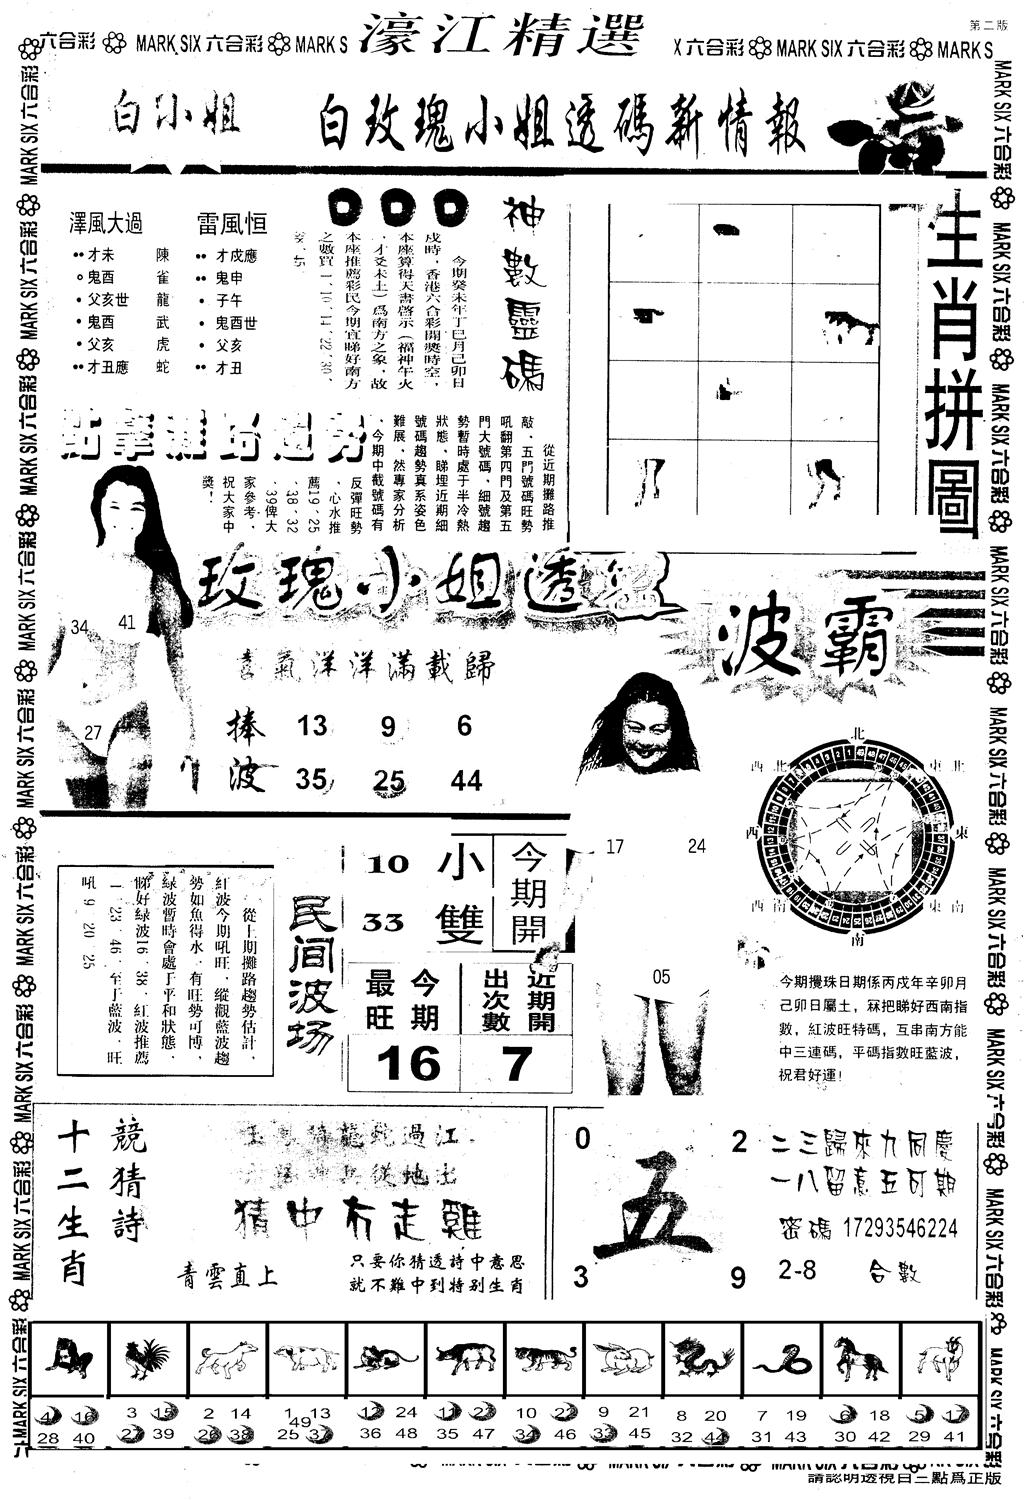 第二版
六合彩 MARK SIX 六合彩 MARK S
濠江精選
六合彩 MARK SIX 六合彩 MARK S
白小姐
白玫瑰小姐透碼新情報
澤風大過
雷風恒
才未 陳
鬼酉 雀
父亥世 龍
鬼酉 武
父亥 虎
才丑應 蛇
才戍應
鬼申
子午
鬼酉世
父亥
才丑
神數靈碼
今期癸未年丁巳月己卯日
戍時，香港六合彩開獎時空，
本座算得天書啓示（福神午火
、才爻未土）爲南方之象，故
本座推薦彩民今期宜睇好南方
生肖拼圖
從近期攤路推
敲、五門號碼旺勢
吼翻第四門及第五
門大號碼，細號趨
勢暫時處于半冷熱
狀態，睇埋近期細
號碼趨勢真系姿色
難展，然專家分析
、今期中截號碼有
反彈旺勢
、心水推
薦19、25
、38、32
、39俾大
家參考，
祝大家中
獎！
34 41
27
玫瑰小姐透
喜氣洋洋滿載歸
捧波
13 9 6
35 25 44
波霸
17 24
05
北
東北
東
東南
南
西南
西
西北
今期攪珠日期係丙戍年辛卯月
己卯日屬土，冧把睇好西南指
數，紅波旺特碼，互串南方能
中三連碼，平碼指數旺藍波，
祝君好運！
民间波场
從上期攤路趨勢估計，
紅波今期吼旺，縱觀藍波趨
勢如魚得水，有旺勢可博，
綠波暫時會處于平和狀態，
睇好綠波16、38、紅波推薦
一、23、46、至于藍波、旺
吼、9、20、25
10 小
33 雙
今期開
今期最旺
近期開出次數
16 7
十二生肖
競猜詩
猜中冇走雞
青雲直上
只要你猜透詩中意思
就不難中到特别生肖
0 2
五
3 9
二三歸來九同慶
一八留意五可期
密碼 17293546224
2-8 合數
4 16 28 40
3 15 27 39
2 14 26 38
1 13 49 25 37
12 24 36 48
11 23 35 47
10 22 34 46
9 21 33 45
8 20 32 44
7 19 31 43
6 18 30 42
5 17 29 41
請認明透視百三點爲正版